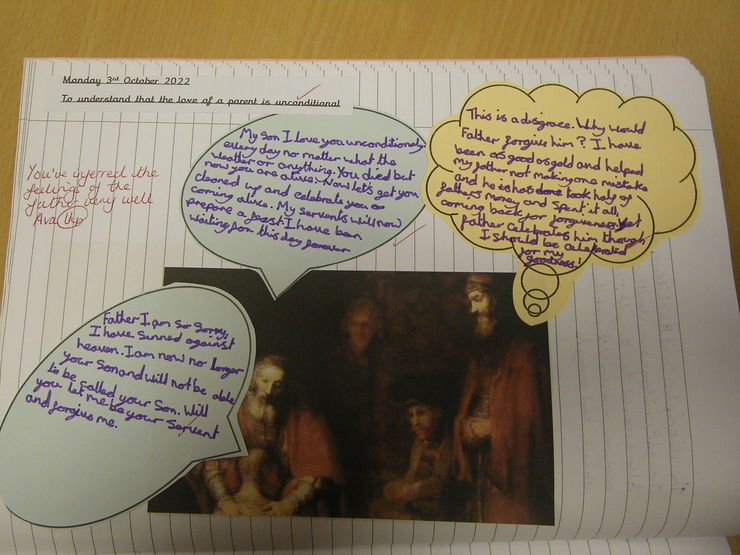 Monday 3rd October 2022
To understand that the love of a parent is unconditional
You've inferred the
feelings of the
father very well
Ava
My son I love you unconditionaly
every day no matter what the
weather or anything. You died but
now you are alive. Now lets get you
cleaned up and celebrate you
coming alive. My servents will now
prepare a feast. I have been
waiting for this day forever
This is a disgrace. Why would
Father forgive him? I have
been as good as gold and helped
my father not making one mistake
and he has took half of
fathers money and spent it all
coming back for forgiveness yet
father celebrates him though
I should be celebrated
for my
goodness!
Father I am so sorry,
I have sinned against
heaven. I am now no longer
your Son and will not be able
to be called your Son. Will
you let me be your servent
and forgive me.